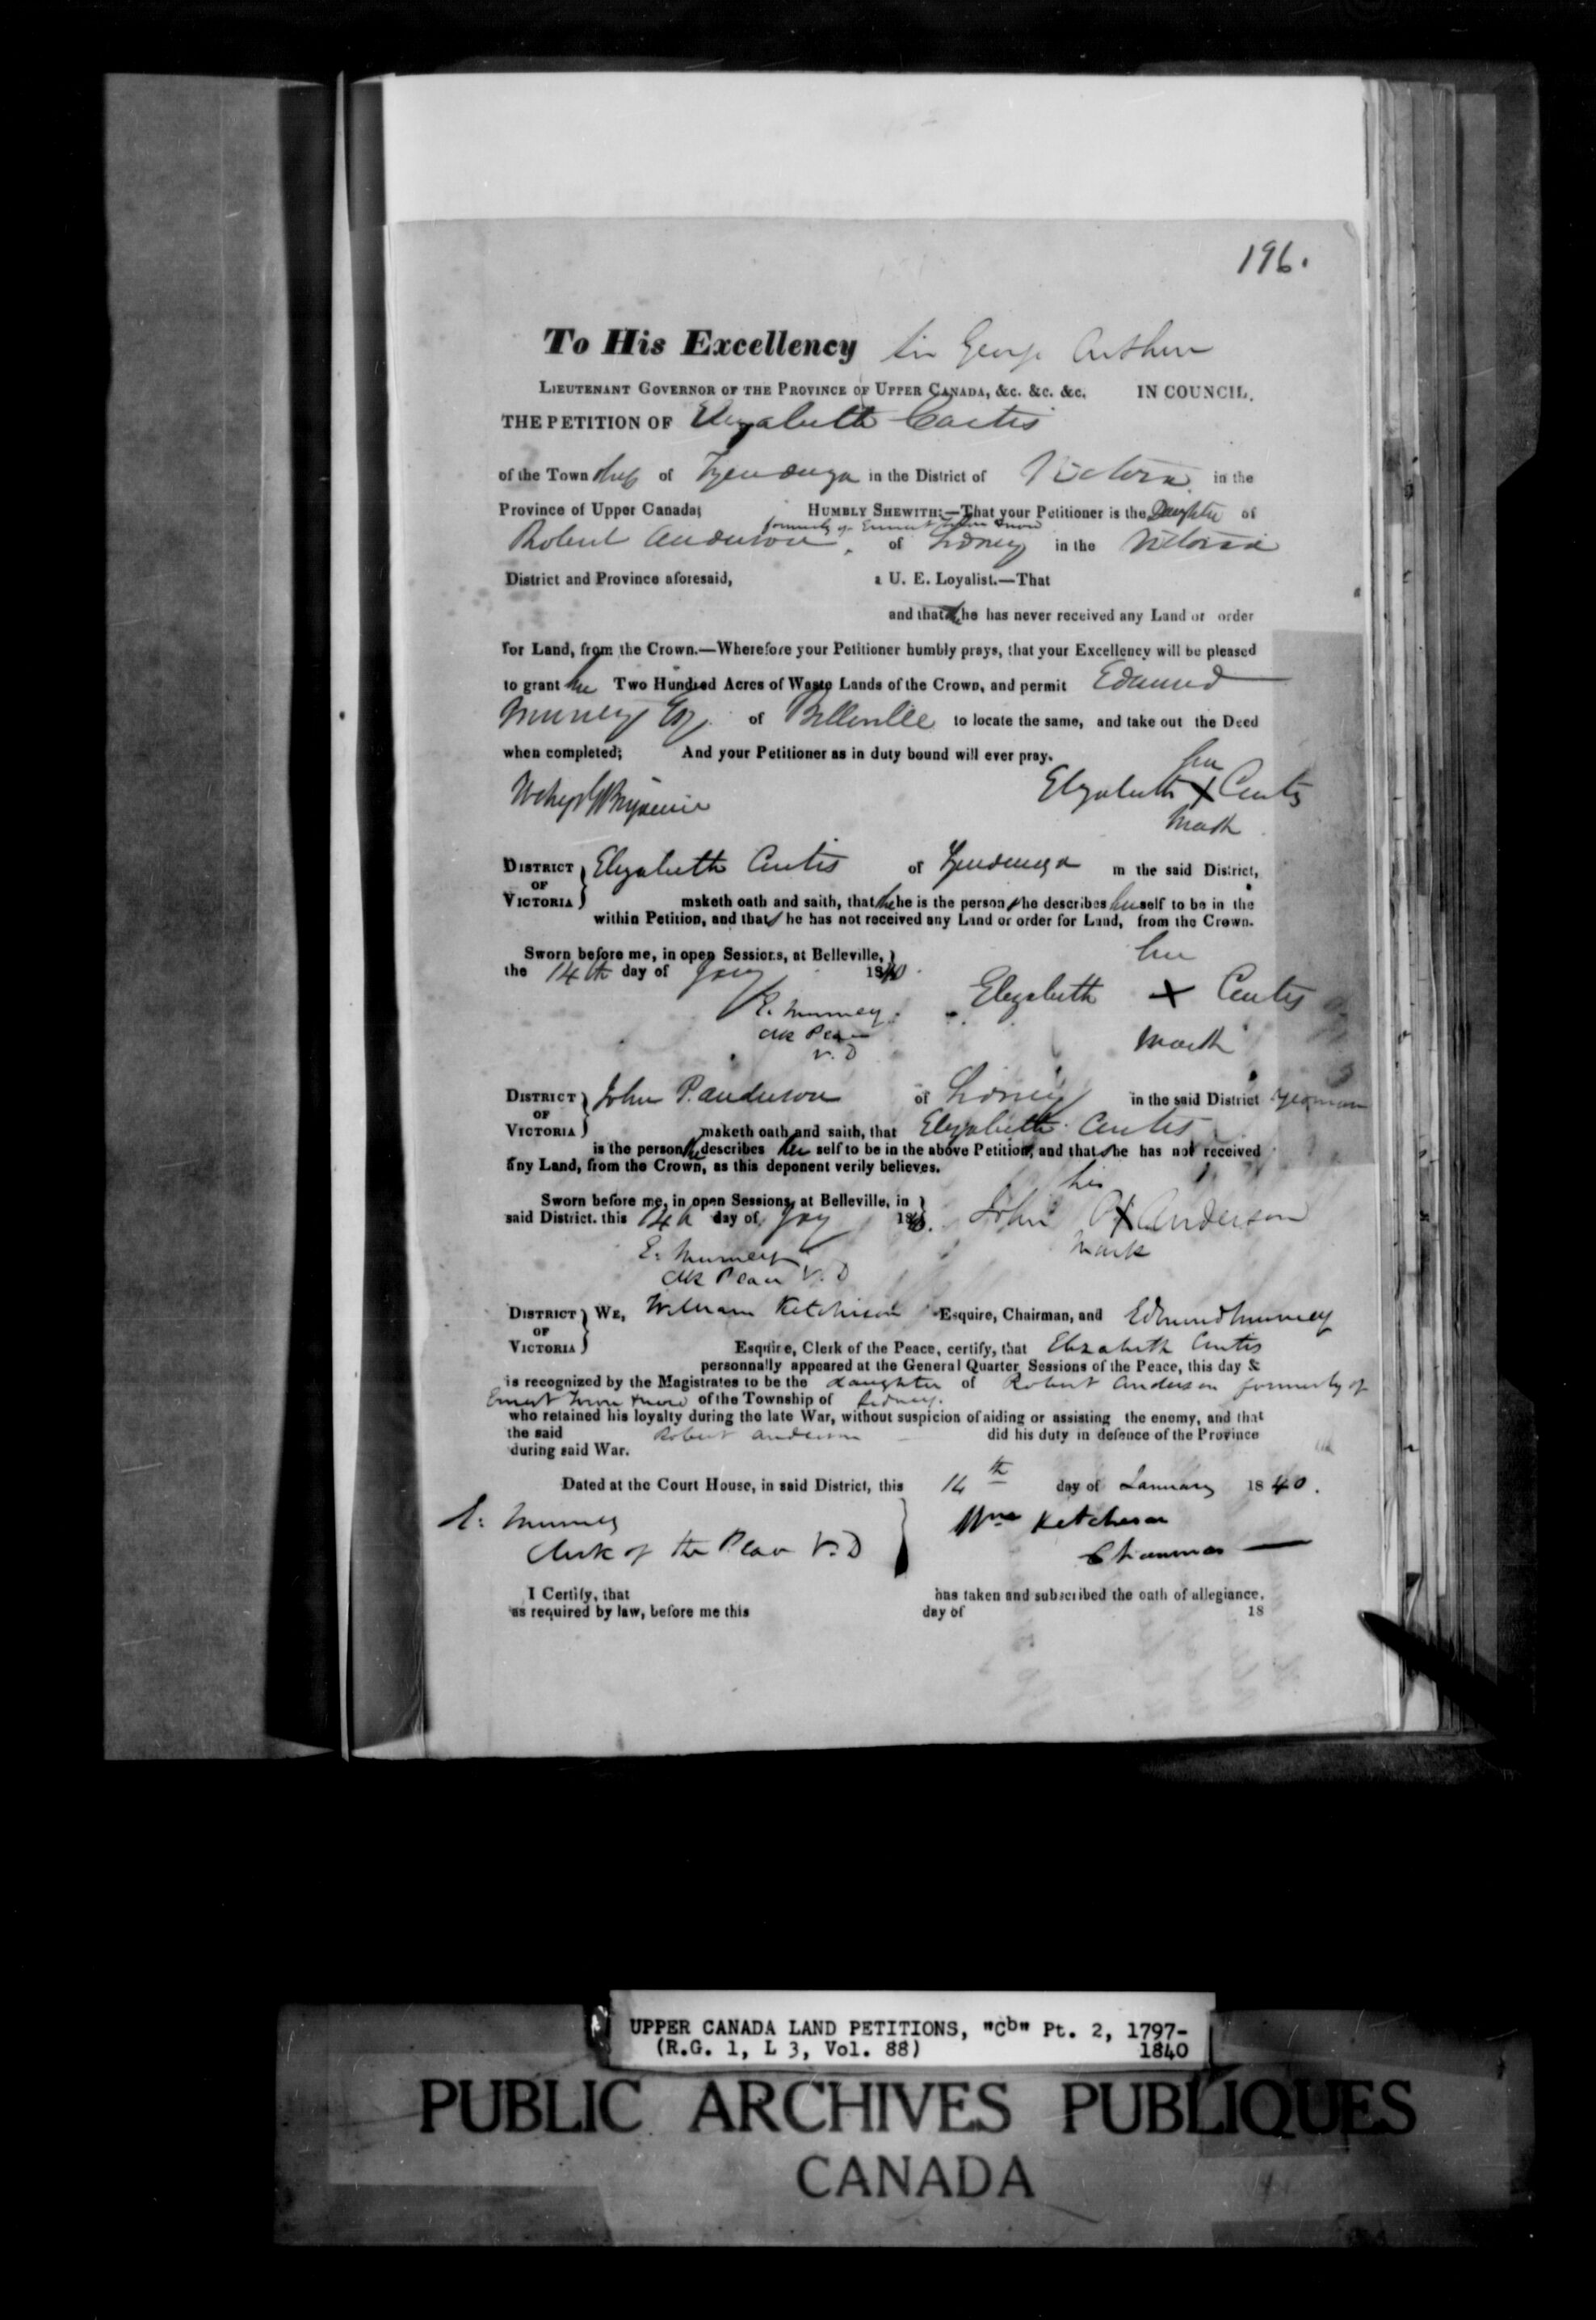 196.
To His Excellency Sir George Arthur
LIEUTENANT GOVERNOR OF THE PROVINCE OF UPPER CANADA, &c. &c. &c. IN COUNCIL.
THE PETITION OF Elizabeth Curtis
of the Township of Tyendenga in the District of Victoria in the
Province of Upper Canada; HUMBLY SHEWITH:—That your Petitioner is the Daughter of
formerly of Ernest Town & now
Robert Anderson, of Sidney in the Victoria
District and Province aforesaid, a U. E. Loyalist.—That
and that she has never received any Land or order
for Land, from the Crown.—Wherefore your Petitioner humbly prays, that your Excellency will be pleased
to grant her Two Hundred Acres of Waste Lands of the Crown, and permit Edmund
Murney Esq. of Belleville to locate the same, and take out the Deed
when completed; And your Petitioner as in duty bound will ever pray.
her
Elizabeth X Curtis
mark
DISTRICT OF VICTORIA } Elizabeth Curtis of Tyendenga in the said District,
maketh oath and saith, that she is the person she describes herself to be in the
within Petition, and that she has not received any Land or order for Land, from the Crown.
Sworn before me, in open Sessions, at Belleville, }
the 14th day of Jany 1840.
her
Elizabeth X Curtis
mark
E. Murney
Clk Peace
V. D
DISTRICT OF VICTORIA } John P. Anderson of Sidney in the said District yeoman
maketh oath and saith, that Elizabeth Curtis
is the person she describes her self to be in the above Petition, and that she has not received
any Land, from the Crown, as this deponent verily believes.
Sworn before me, in open Sessions, at Belleville, in }
said District. this 14th day of Jany 1840.
his
John P X Anderson
mark
E. Murney
Clk Peace V. D
DISTRICT OF VICTORIA } WE, William Ketcheson Esquire, Chairman, and Edmund Murney
Esquire, Clerk of the Peace, certify, that Elizabeth Curtis
personnally appeared at the General Quarter Sessions of the Peace, this day &
is recognized by the Magistrates to be the daughter of Robert Anderson formerly of
Ernest Town & now of the Township of Sidney.
who retained his loyalty during the late War, without suspicion of aiding or assisting the enemy, and that
the said Robert Anderson did his duty in defence of the Province
during said War.
Dated at the Court House, in said District, this 14th day of January 1840.
E. Murney
Clerk of the Peace V. D
Wm Ketcheson
Chairman
I Certify, that has taken and subscribed the oath of allegiance,
as required by law, before me this day of 18
UPPER CANADA LAND PETITIONS, "Cb" Pt. 2, 1797-
(R.G. 1, L 3, Vol. 88) 1840
PUBLIC ARCHIVES PUBLIQUES
CANADA